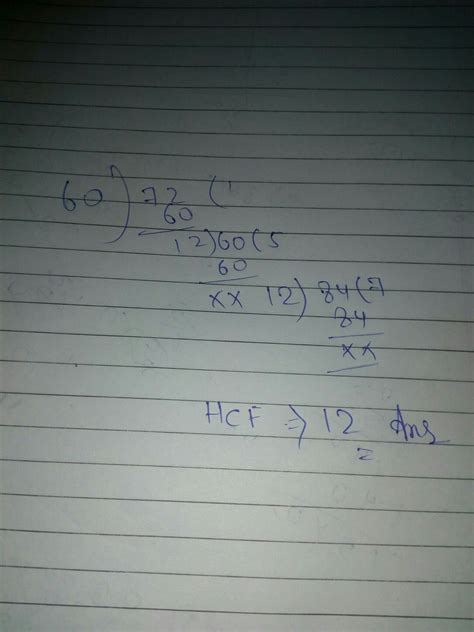 60) 72 (1
60
12) 60 (5
60
xx 12) 84 (7
84
xx
HCF ⇒ 12 Ans